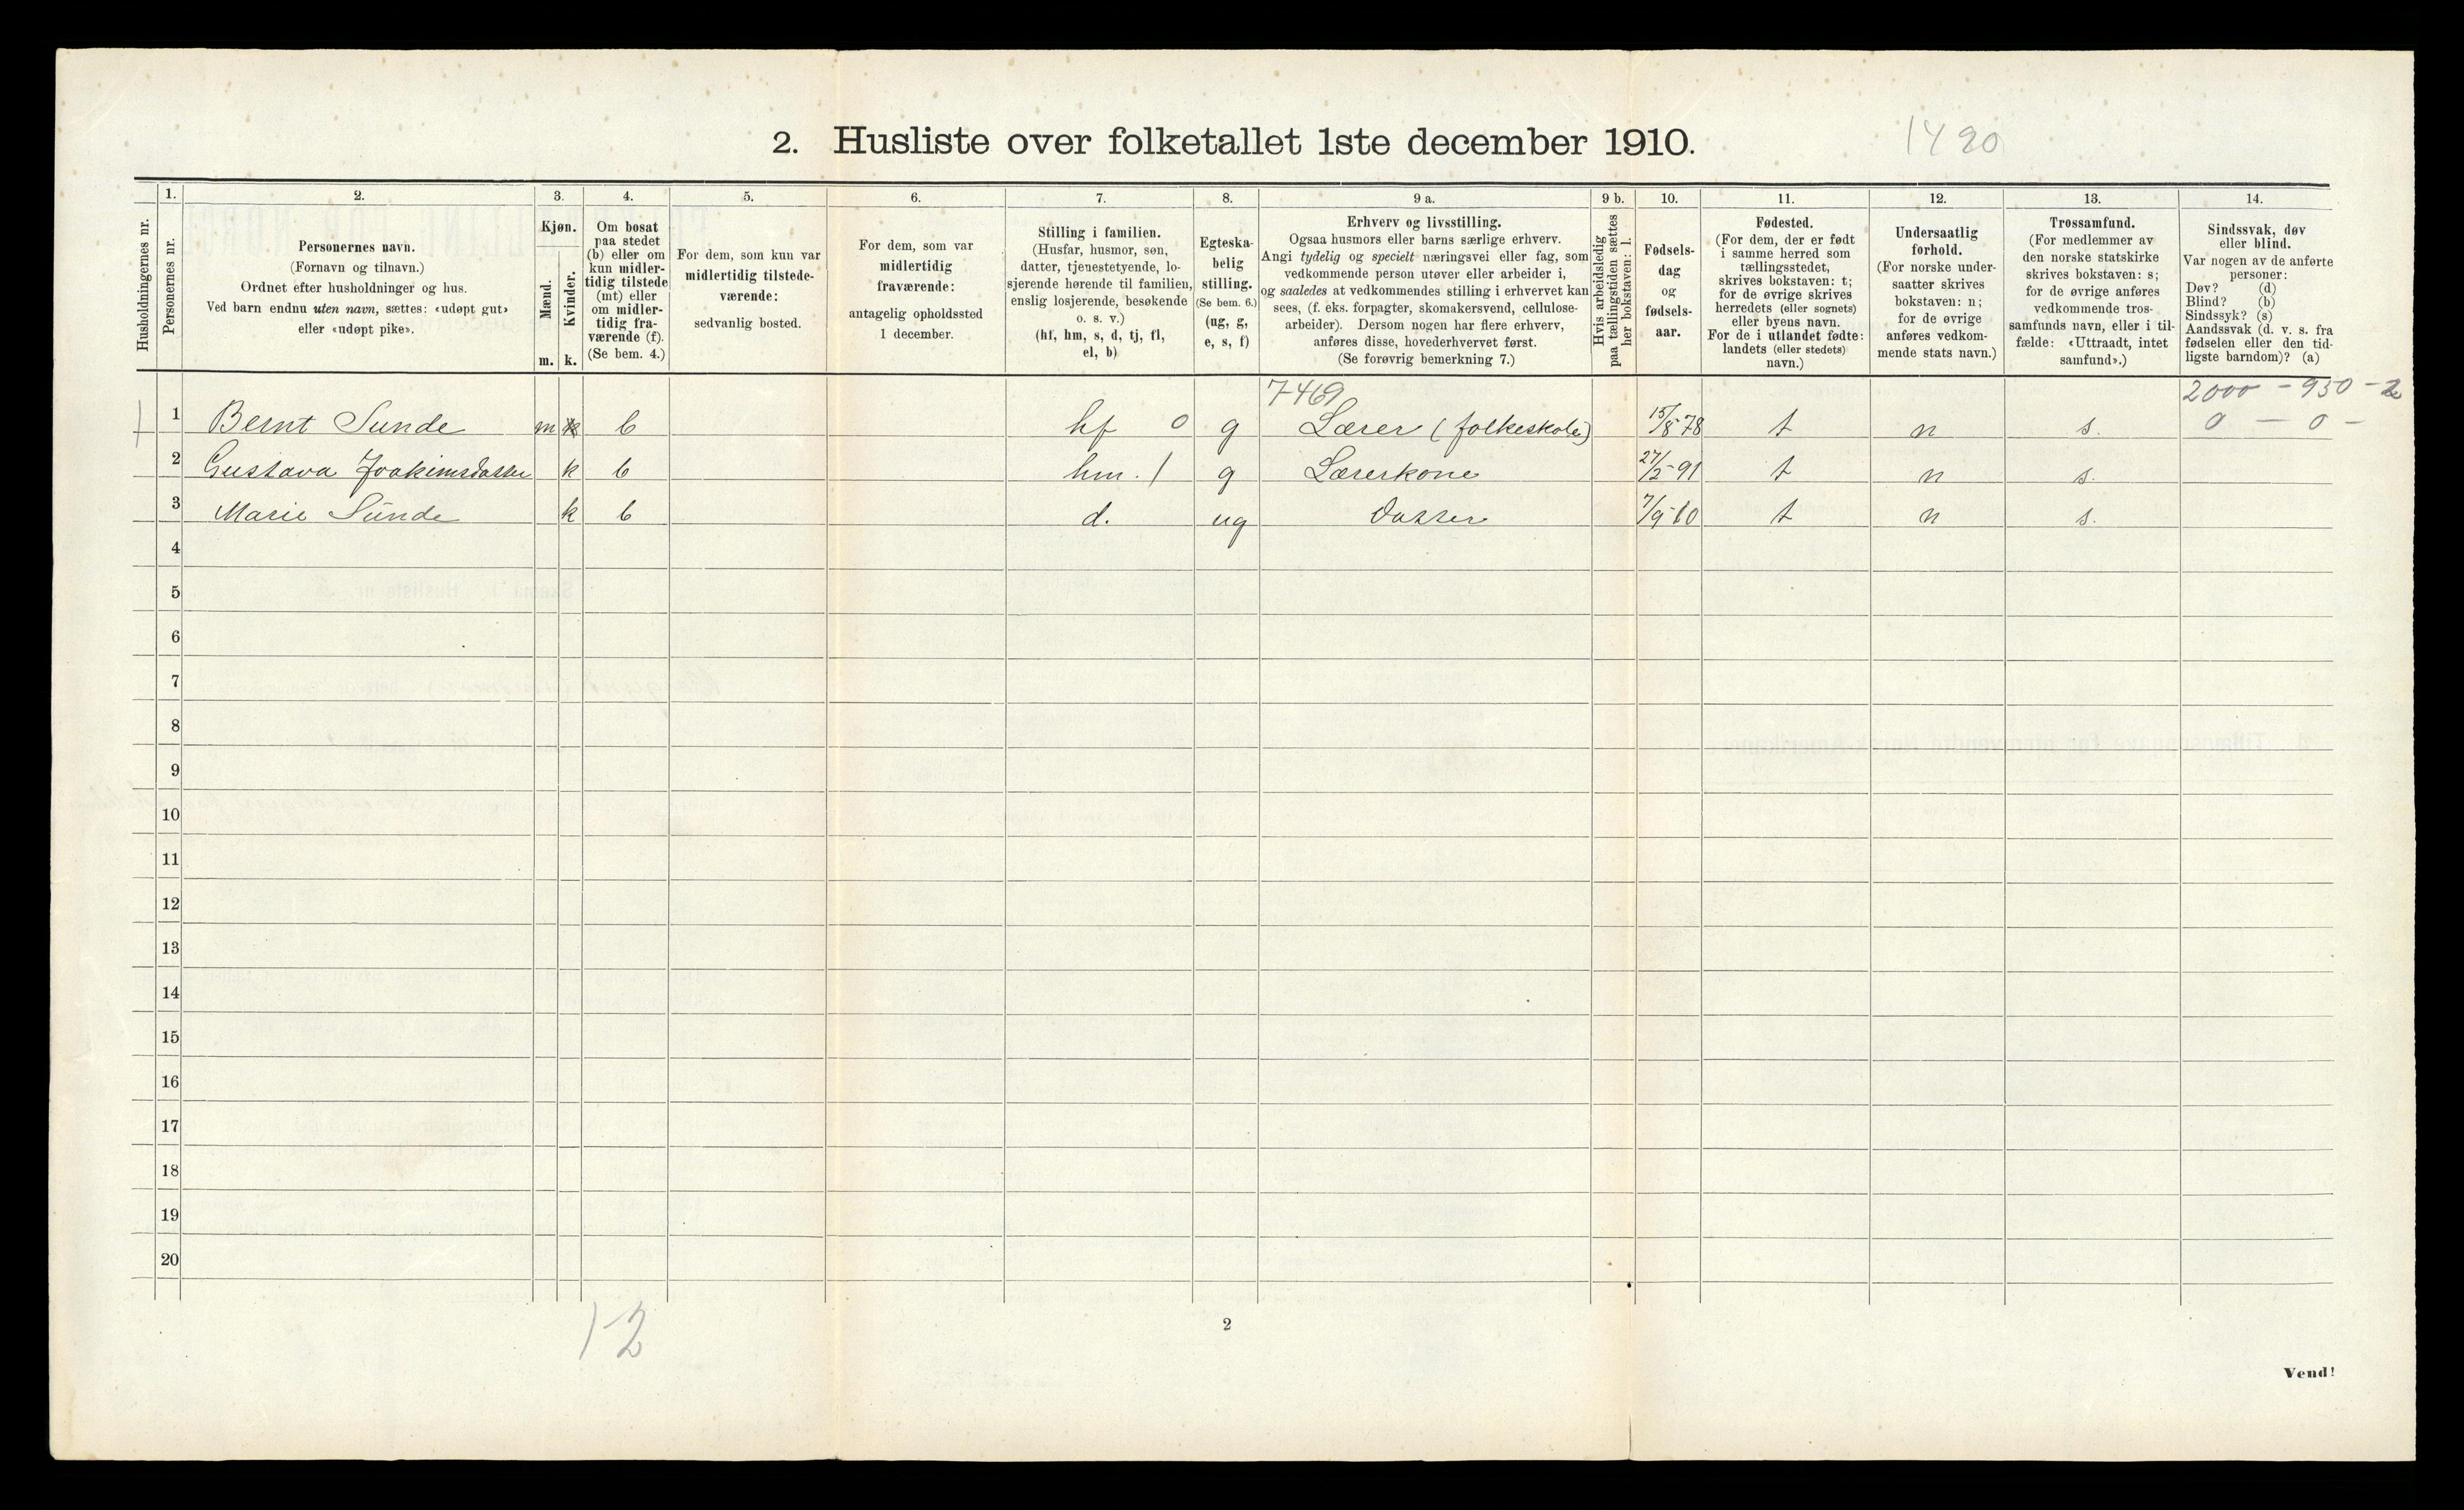 2. Husliste over folketallet 1ste december 1910.
1420
Husholdningernes nr.
1.
Personernes nr.
2.
Personernes navn.
(Fornavn og tilnavn.)
Ordnet efter husholdninger og hus.
Ved barn endnu uten navn, sættes: «udøpt gut»
eller «udøpt pike».
3.
Kjøn.
Mænd.
Kvinder.
m. k.
4.
Om bosat
paa stedet
(b) eller om
kun midler-
tidig tilstede
(mt) eller
om midler-
tidig fra-
værende (f).
(Se bem. 4.)
5.
For dem, som kun var
midlertidig tilstede-
værende:
sedvanlig bosted.
6.
For dem, som var
midlertidig
fraværende:
antagelig opholdssted
1 december.
7.
Stilling i familien.
(Husfar, husmor, søn,
datter, tjenestetyende, lo-
sjerende hørende til familien,
enslig losjerende, besøkende
o. s. v.)
(hf, hm, s, d, tj, fl,
el, b)
8.
Egteska-
belig
stilling.
(Se bem. 6.)
(ug, g,
e, s, f)
9 a.
Erhverv og livsstilling.
Ogsaa husmors eller barns særlige erhverv.
Angi tydelig og specielt næringsvei eller fag, som
vedkommende person utøver eller arbeider i,
og saaledes at vedkommendes stilling i erhvervet kan
sees, (f. eks. forpagter, skomakersvend, cellulose-
arbeider). Dersom nogen har flere erhverv,
anføres disse, hovederhvervet først.
(Se forøvrig bemerkning 7.)
9 b.
Hvis arbeidsledig
paa tællingstiden sættes
her bokstaven: l.
10.
Fødsels-
dag
og
fødsels-
aar.
11.
Fødested.
(For dem, der er født
i samme herred som
tællingsstedet,
skrives bokstaven: t;
for de øvrige skrives
herredets (eller sognets)
eller byens navn.
For de i utlandet fødte:
landets (eller stedets)
navn.)
12.
Undersaatlig
forhold.
(For norske under-
saatter skrives
bokstaven: n;
for de øvrige
anføres vedkom-
mende stats navn.)
13.
Trossamfund.
(For medlemmer av
den norske statskirke
skrives bokstaven: s;
for de øvrige anføres
vedkommende tros-
samfunds navn, eller i til-
fælde: «Uttraadt, intet
samfund».)
14.
Sindssvak, døv
eller blind.
Var nogen av de anførte
personer:
Døv? (d)
Blind? (b)
Sindssyk? (s)
Aandssvak (d. v. s. fra
fødselen eller den tid-
ligste barndom)? (a)
7469 2000 - 950 -
1 1 Bernt Sunde m b hf 0 g Lærer (folkeskole) 15/8 78 t n s. 0 - 0 -
2 Gustava Joakimsdatter k b hm. 1 g Lærerkone 27/5-91 t n s.
3 Marie Sunde k b d. ug Datter 7/9-10 t n s.
4
5
6
7
8
9
10
11
12
13
14
15
16
17
18
19
20
1-2
2
Vend!